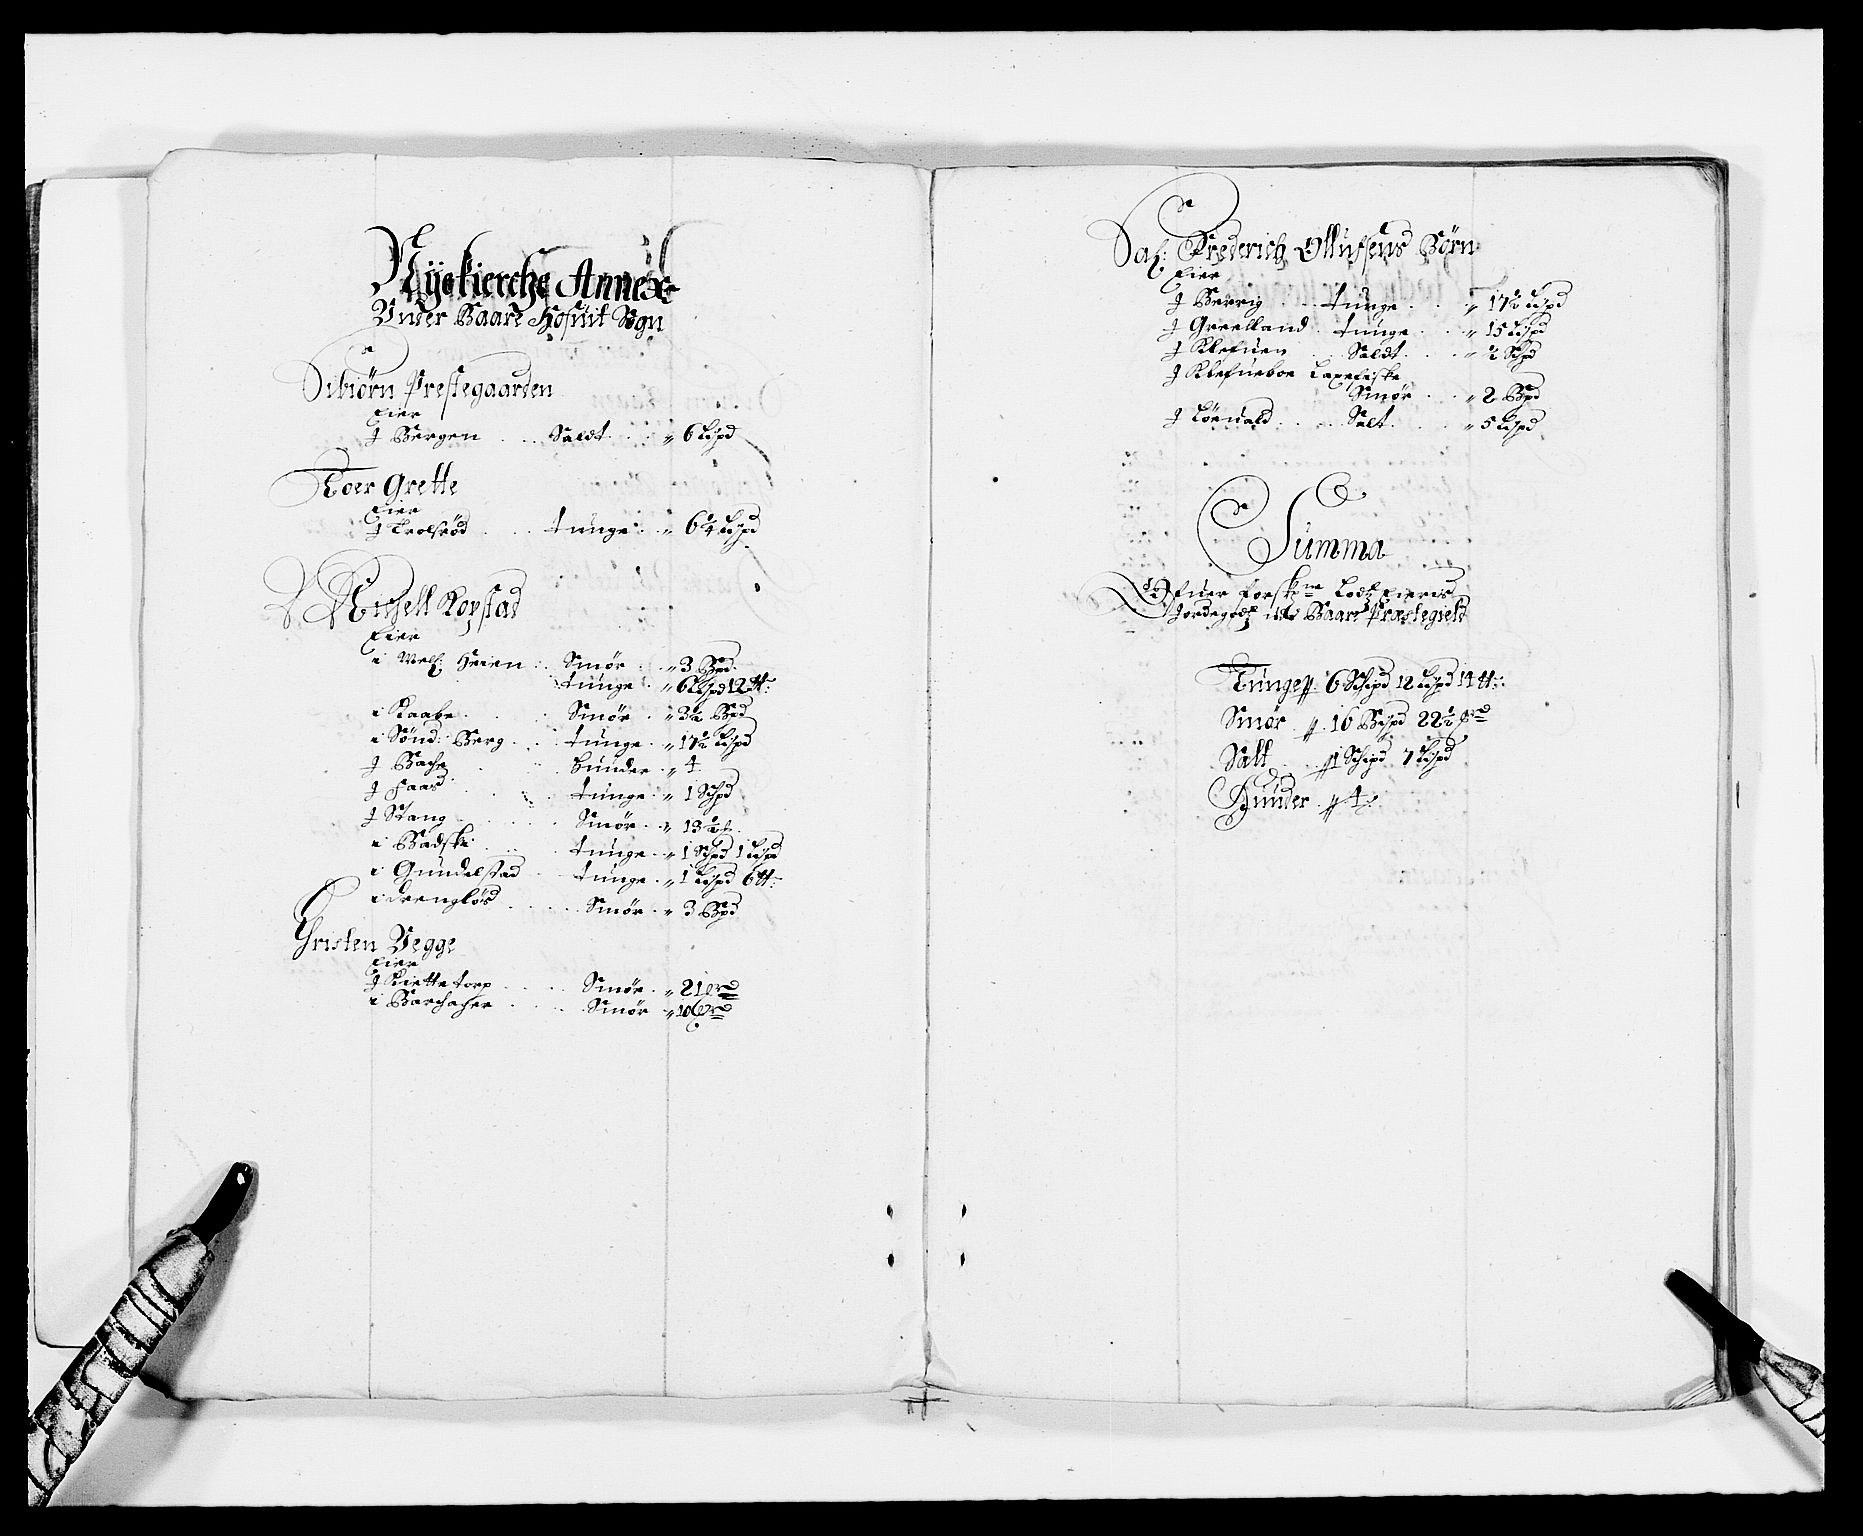 Nyekierche Annex
Under Baare Hofuit Sogn
Sibiørn Prestegaarden
Eier
J Bergen . . . Saldt . . „ 6 Lispd
Roer Grette
Eier
J Trolsrød . . . tunge . . „ 6¼ Lispd
Michell Kopstad
Eier
i Heien . . Smør . . „ 3 Bpd
tunge . „ 6 Lispd 12 tt:
i Raabe . . . Smør . „ 3½ Bpd
i Sønd: Berg . . . tunge . „ 17½ Lispd
J Bache . . . huuder „ 4
J Faas . . . tunge . „ 1 Schpd
J Stang . . . Smør . „ 13½
i Badske . . . tunge . „ 1 Schpd 1 Lispd
i Gundelstad . . tunge . „ 1 Lispd 6 tt:
i drengløs . . . Smør . „ 3 Bpd
Christen Vegge
Eier
J Kiettetorp . . . Smør . „ 21
i Barchager . . . Smør . „ 10
Sal: Frederich Ollufsens Børn
Eier
J Berrig . . . tunge . . „ 17½ Lispd
J Greelland . tunge . . „ 15 Lispd
J Klefuen . . Saldt . . „ ½ Schpd
J Klefueboe Laxefiske
Smør . . „ 2 Bpd
J Løeuald . . . Salt . . „ 5 Lispd
Summa
Ofuer forskne Lodz Eieris
Jordegodz udj Baare Præstegield
Tunge „ 6 Schpd 12 Lispd 14 tt:
Smør „ 16 Bispd 22½
Salt . . „ 1 Schipd 7 Lispd
Huuder . „ 4